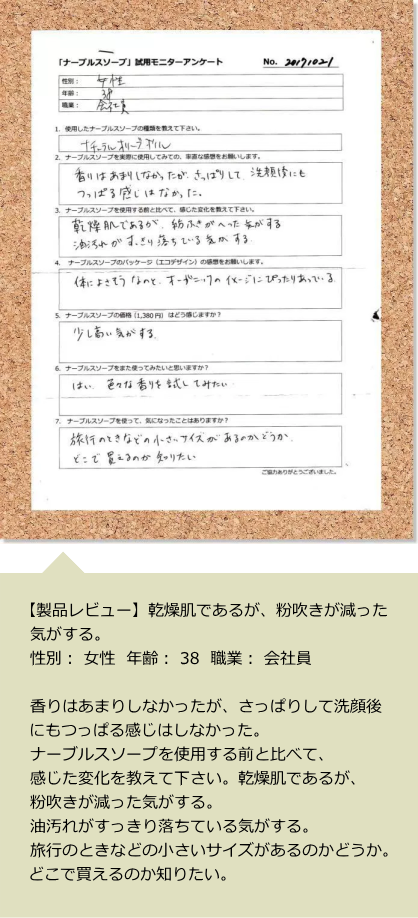 「ナーブルスソープ」試用モニターアンケート No. 20171021
性別： 女性
年齢： 38
職業： 会社員
1. 使用したナーブルスソープの種類を教えて下さい。
ナチュラルオリーブオイル
2. ナーブルスソープを実際に使用してみての、率直な感想をお願いします。
香りはあまりしなかったが、さっぱりして、洗顔後にも
つっぱる感じはなかった。
3. ナーブルスソープを使用する前と比べて、感じた変化を教えて下さい。
乾燥肌であるが、粉ふきがへった気がする
油汚れがすっきり落ちている気がする。
4. ナーブルスソープのパッケージ（エコデザイン）の感想をお願いします。
体によさそうなのと、オーガニックのイメージにぴったりあっている
5. ナーブルスソープの価格（1,380円）はどう感じますか？
少し高い気がする。
6. ナーブルスソープをまた使ってみたいと思いますか？
はい。色々な香りを試してみたい
7. ナーブルスソープを使って、気になったことはありますか？
旅行のときなどの小さいサイズがあるのかどうか。
どこで買えるのか知りたい
ご協力ありがとうございました。
【製品レビュー】乾燥肌であるが、粉吹きが減った
気がする。
性別： 女性 年齢： 38 職業： 会社員
香りはあまりしなかったが、さっぱりして洗顔後
にもつっぱる感じはしなかった。
ナーブルスソープを使用する前と比べて、
感じた変化を教えて下さい。乾燥肌であるが、
粉吹きが減った気がする。
油汚れがすっきり落ちている気がする。
旅行のときなどの小さいサイズがあるのかどうか。
どこで買えるのか知りたい。